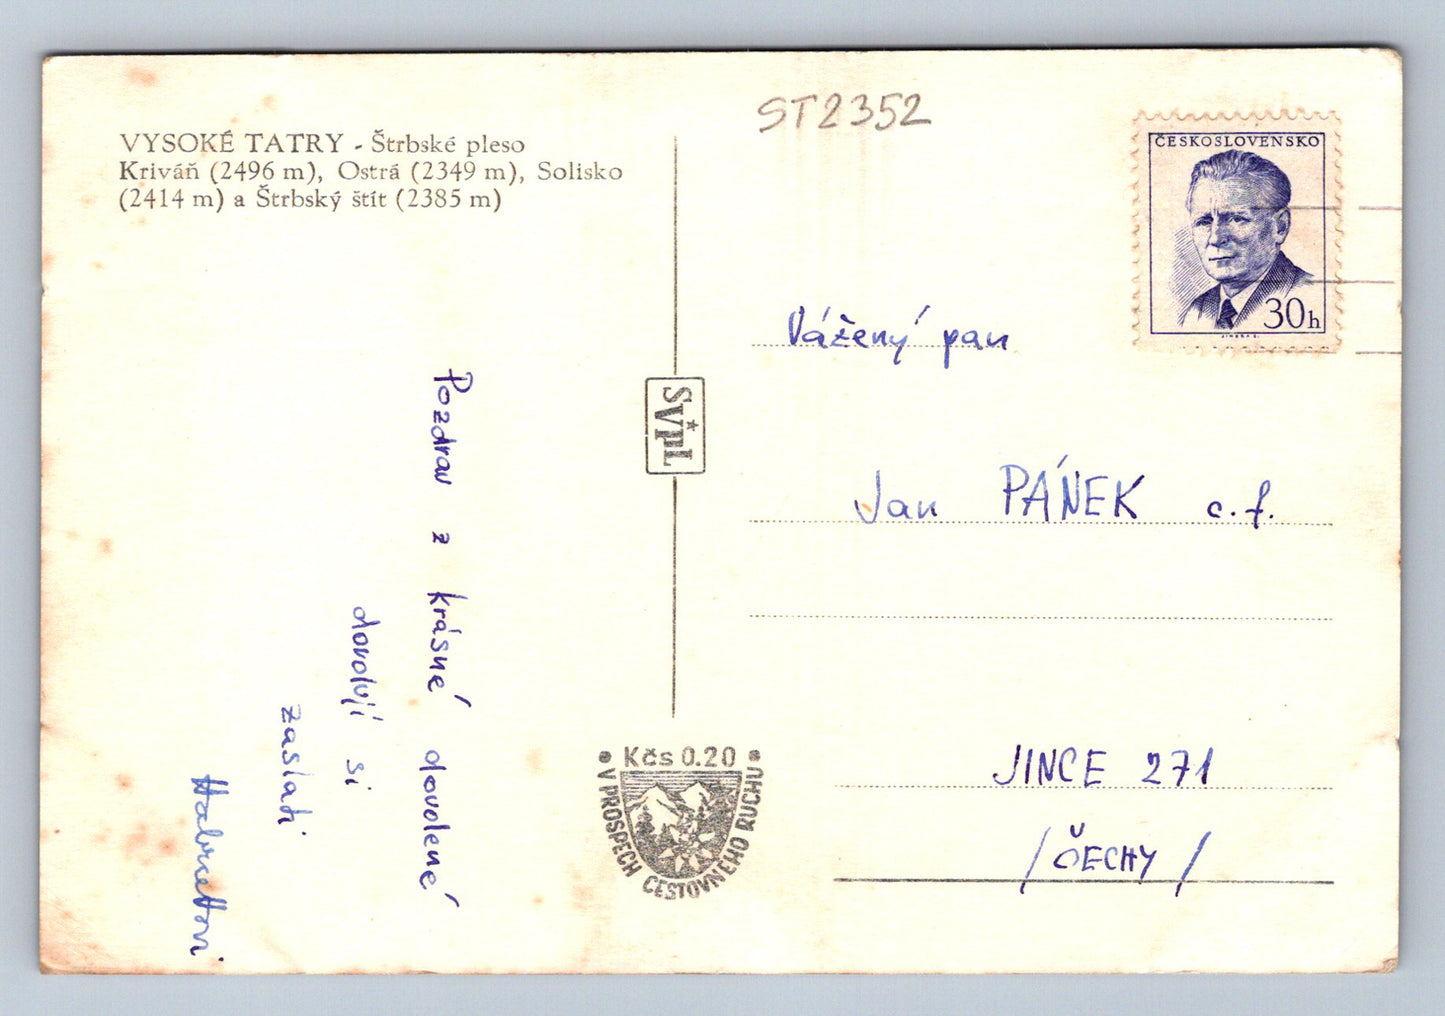 VYSOKÉ TATRY - Štrbské pleso
Kriváň (2496 m), Ostrá (2349 m), Solisko
(2414 m) a Štrbský štít (2385 m)
Pozdrav z krásné dovolené
dovolují si
zaslati
ST2352
ČESKOSLOVENSKO
30h
Vážený pan
Jan PÁNEK c.f.
JINCE 271
/ ČECHY /
Kčs 0.20
V PROSPECH CESTOVNÉHO RUCHU